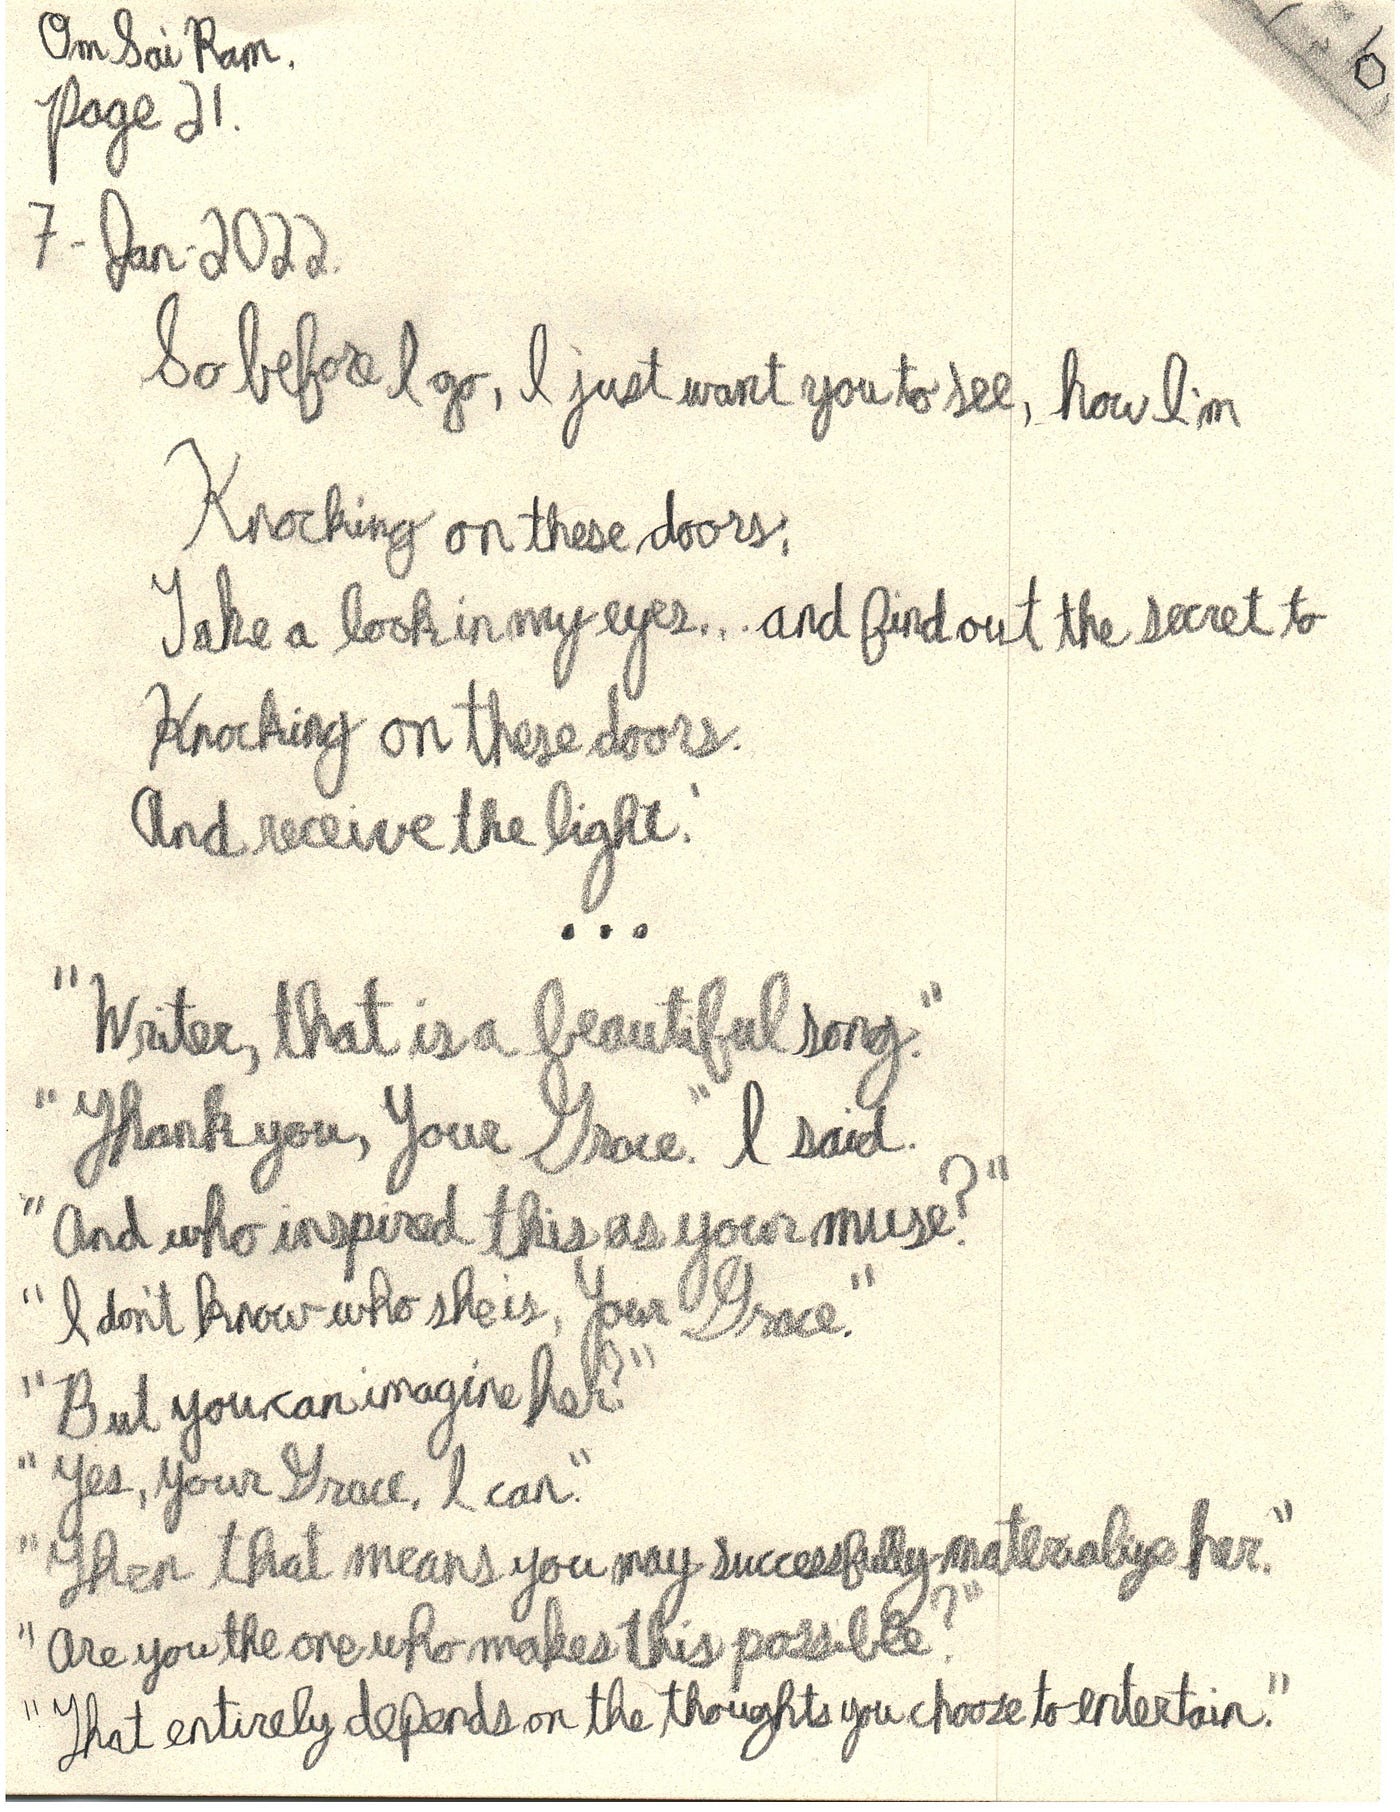 Om Sai Ram.
6
page 21.
7-Jan-2022.
So before I go, I just want you to see, how I'm
Knocking on these doors;
Take a look in my eyes... and find out the secret to
Knocking on these doors.
And receive the light.'
...
"Writer, that is a beautiful song."
"Thank you, Your Grace." I said.
"And who inspired this as your muse?"
"I don't know who she is, Your Grace."
"But you can imagine her?"
"Yes, Your Grace, I can."
"Then that means you may successfully materialize her."
"Are you the one who makes this possible?"
"That entirely depends on the thoughts you choose to entertain."